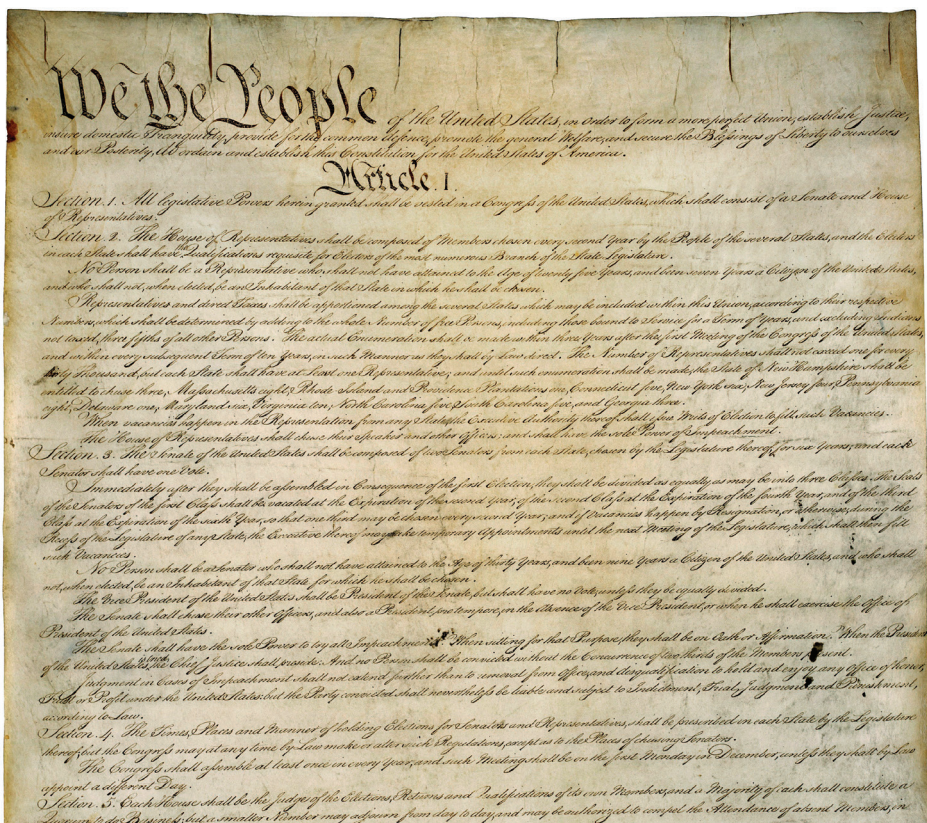 We the People of the United States, in Order to form a more perfect Union, establish Justice,
insure domestic Tranquility, provide for the common defence, promote the general Welfare, and secure the Blessings of Liberty to ourselves
and our Posterity, do ordain and establish this Constitution for the United States of America.
Article. I.
Section. 1. All legislative Powers herein granted shall be vested in a Congress of the United States, which shall consist of a Senate and House
of Representatives.
Section. 2. The House of Representatives shall be composed of Members chosen every second Year by the People of the several States, and the Electors
in each State shall have the Qualifications requisite for Electors of the most numerous Branch of the State Legislature.
No Person shall be a Representative who shall not have attained to the Age of twenty five Years, and been seven Years a Citizen of the United States,
and who shall not, when elected, be an Inhabitant of that State in which he shall be chosen.
Representatives and direct Taxes shall be apportioned among the several States which may be included within this Union, according to their respective
Numbers, which shall be determined by adding to the whole Number of free Persons, including those bound to Service for a Term of Years, and excluding Indians
not taxed, three fifths of all other Persons. The actual Enumeration shall be made within three Years after the first Meeting of the Congress of the United States,
and within every subsequent Term of ten Years, in such Manner as they shall by Law direct. The Number of Representatives shall not exceed one for every
thirty Thousand, but each State shall have at Least one Representative; and until such enumeration shall be made, the State of New Hampshire shall be
entitled to chuse three, Massachusetts eight, Rhode Island and Providence Plantations one, Connecticut five, New York six, New Jersey four, Pennsylvania
eight, Delaware one, Maryland six, Virginia ten, North Carolina five, South Carolina five, and Georgia three.
When vacancies happen in the Representation from any State, the Executive Authority thereof shall issue Writs of Election to fill such Vacancies.
The House of Representatives shall chuse their Speaker and other Officers; and shall have the sole Power of Impeachment.
Section. 3. The Senate of the United States shall be composed of two Senators from each State, chosen by the Legislature thereof, for six Years; and each
Senator shall have one Vote.
Immediately after they shall be assembled in Consequence of the first Election, they shall be divided as equally as may be into three Classes. The Seats
of the Senators of the first Class shall be vacated at the Expiration of the second Year, of the second Class at the Expiration of the fourth Year, and of the third
Class at the Expiration of the sixth Year, so that one third may be chosen every second Year; and if Vacancies happen by Resignation, or otherwise, during the
Recess of the Legislature of any State, the Executive thereof may make temporary Appointments until the next Meeting of the Legislature, which shall then fill
such Vacancies.
No Person shall be a Senator who shall not have attained to the Age of thirty Years, and been nine Years a Citizen of the United States, and who shall
not, when elected, be an Inhabitant of that State for which he shall be chosen.
The Vice President of the United States shall be President of the Senate, but shall have no Vote, unless they be equally divided.
The Senate shall chuse their other Officers, and also a President pro tempore, in the Absence of the Vice President, or when he shall exercise the Office of
President of the United States.
The Senate shall have the sole Power to try all Impeachments. When sitting for that Purpose, they shall be on Oath or Affirmation. When the President
of the United States is tried, the Chief Justice shall preside: And no Person shall be convicted without the Concurrence of two thirds of the Members present.
Judgment in Cases of Impeachment shall not extend further than to removal from Office, and disqualification to hold and enjoy any Office of honor,
Trust or Profit under the United States: but the Party convicted shall nevertheless be liable and subject to Indictment, Trial, Judgment and Punishment,
according to Law.
Section. 4. The Times, Places and Manner of holding Elections for Senators and Representatives, shall be prescribed in each State by the Legislature
thereof; but the Congress may at any time by Law make or alter such Regulations, except as to the Places of chusing Senators.
The Congress shall assemble at least once in every Year, and such Meeting shall be on the first Monday in December, unless they shall by Law
appoint a different Day.
Section. 5. Each House shall be the Judge of the Elections, Returns and Qualifications of its own Members, and a Majority of each shall constitute a
Quorum to do Business; but a smaller Number may adjourn from day to day, and may be authorized to compel the Attendance of absent Members, in